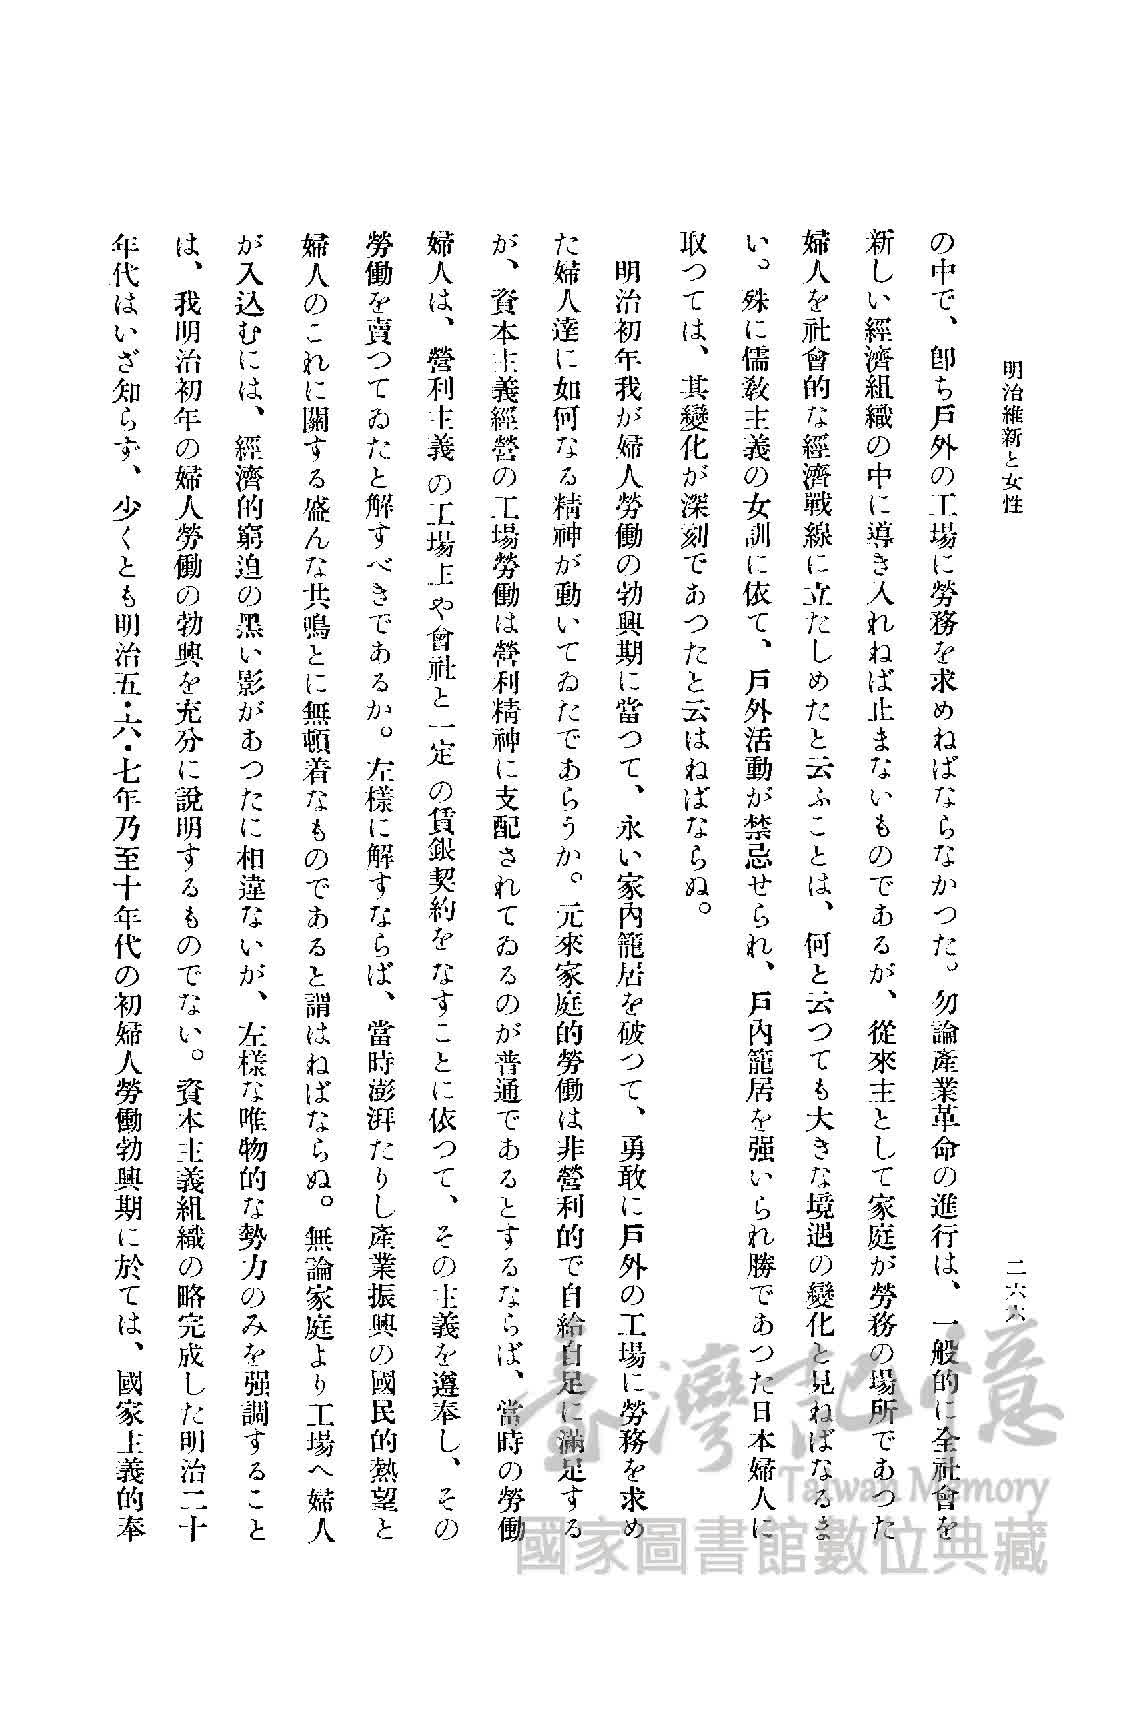 明治維新と女性
二六六
の中で、卽ち戶外の工場に勞務を求めねばならなかつた。勿論產業革命の進行は、一般的に全社會を
新しい經濟組織の中に導き入れねば止まないものであるが、從來主として家庭が勞務の場所であつた
婦人を社會的な經濟戰線に立たしめたと云ふことは、何と云つても大きな境遇の變化と見ねばなるま
い。殊に儒敎主義の女訓に依て、戶外活動が禁忌せられ、戶內籠居を强いられ勝であつた日本婦人に
取つては、其變化が深刻であつたと云はねばならぬ。
明治初年我が婦人勞働の勃興期に當つて、永い家內籠居を破つて、勇敢に戶外の工場に勞務を求め
た婦人達に如何なる精神が動いてゐたであらうか。元來家庭的勞働は非營利的で自給自足に滿足する
が、資本主義經營の工場勞働は營利精神に支配されてゐるのが普通であるとするならば、當時の勞働
婦人は、營利主義の工場主や會社と一定の賃銀契約をなすことに依つて、その主義を遵奉し、その
勞働を賣つてゐたと解すべきであるか。左樣に解すならば、當時澎湃たりし產業振興の國民的熱望と
婦人のこれに關する盛んな共鳴とに無頓着なものであると謂はねばならぬ。無論家庭より工場へ婦人
が入込むには、經濟的窮迫の黑い影があつたに相違ないが、左樣な唯物的な勢力のみを强調すること
は、我明治初年の婦人勞働の勃興を充分に說明するものでない。資本主義組織の略完成した明治二十
年代はいざ知らず、少くとも明治五・六・七年乃至十年代の初婦人勞働勃興期に於ては、國家主義的奉
臺灣記憶
Taiwan Memory
國家圖書館數位典藏